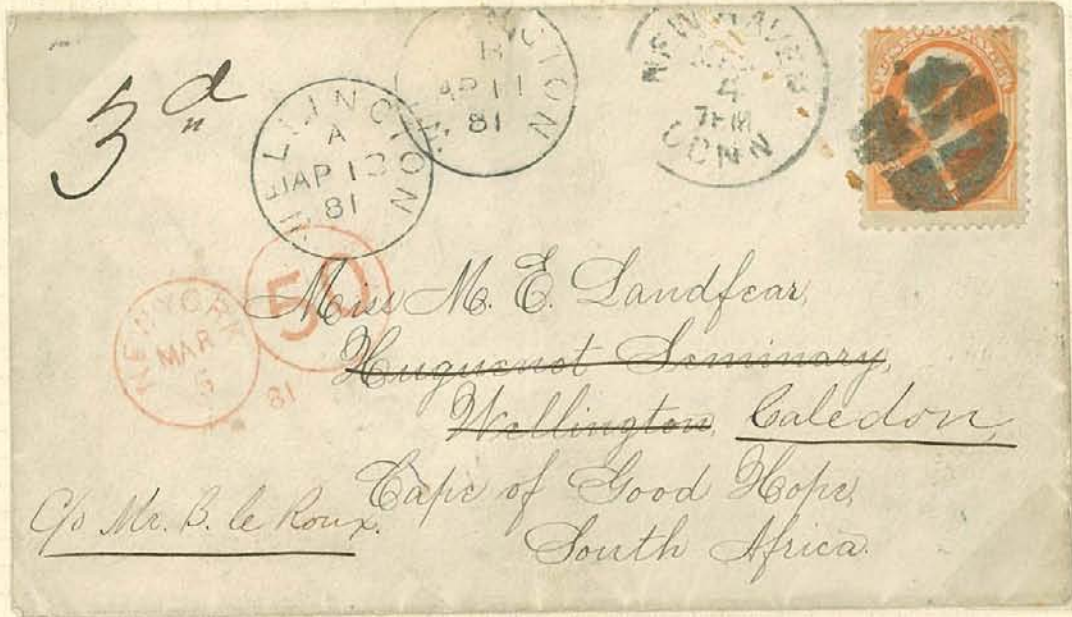 3d
WELLINGTON
A
AP 13
81
NGTON
B
AP 11
81
NEW HAVEN
4
7PM
CONN
NEW YORK
MAR
5
81
50
Miss M. E. Landfear,
Huguenot Seminary,
Wellington, Caledon,
Cape of Good Hope,
South Africa.
C/o Mr. B. le Roux.